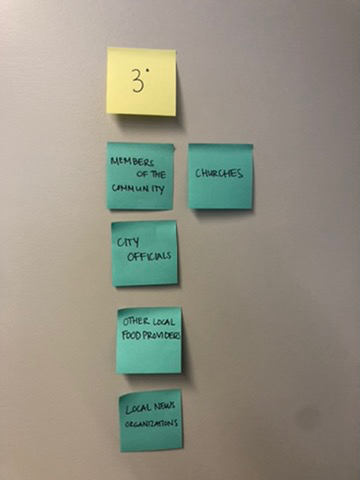 3°
MEMBERS
OF THE
COMMUNITY
CHURCHES
CITY
OFFICIALS
OTHER LOCAL
FOOD PROVIDERS
LOCAL NEWS
ORGANIZATIONS